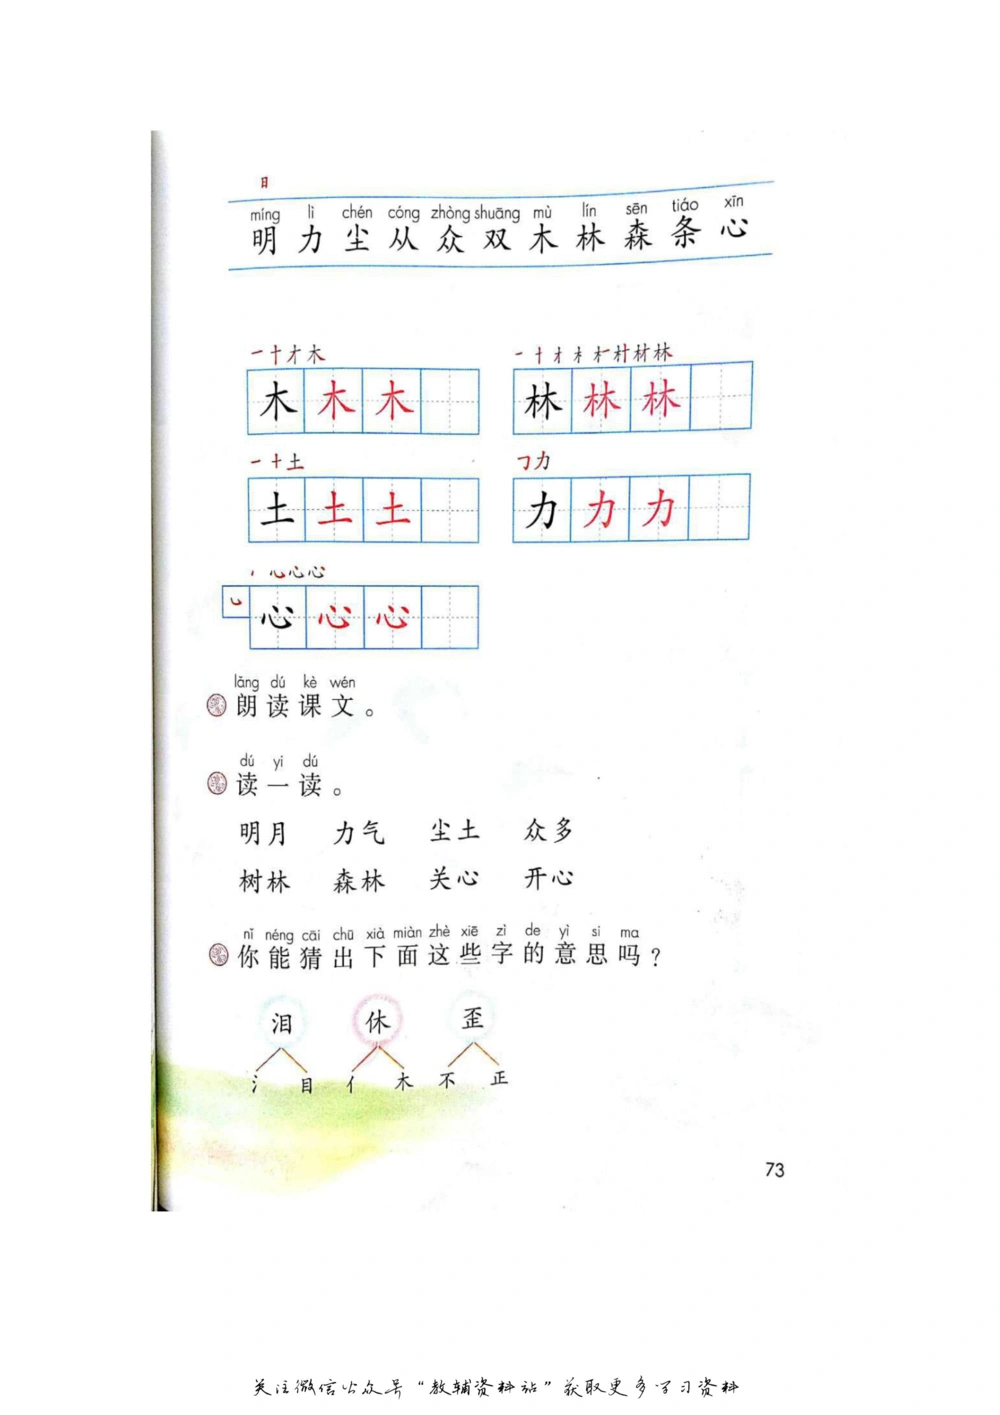 日
míng lì chén cóng zhòng shuāng mù lín sēn tiáo xīn
明 力 尘 从 众 双 木 林 森 条 心
木 木 木 林 林 林
土 土 土 力 力 力
心 心 心
lǎng dú kè wén
朗读课文。
dú yi dú
读一读。
明月 力气 尘土 众多
树林 森林 关心 开心
nǐ néng cāi chū xià miàn zhè xiē zì de yì si ma
你能猜出下面这些字的意思吗?
泪 休 歪
氵 目 亻 木 不 正
73
关注微信公众号“教辅资料站”获取更多学习资料